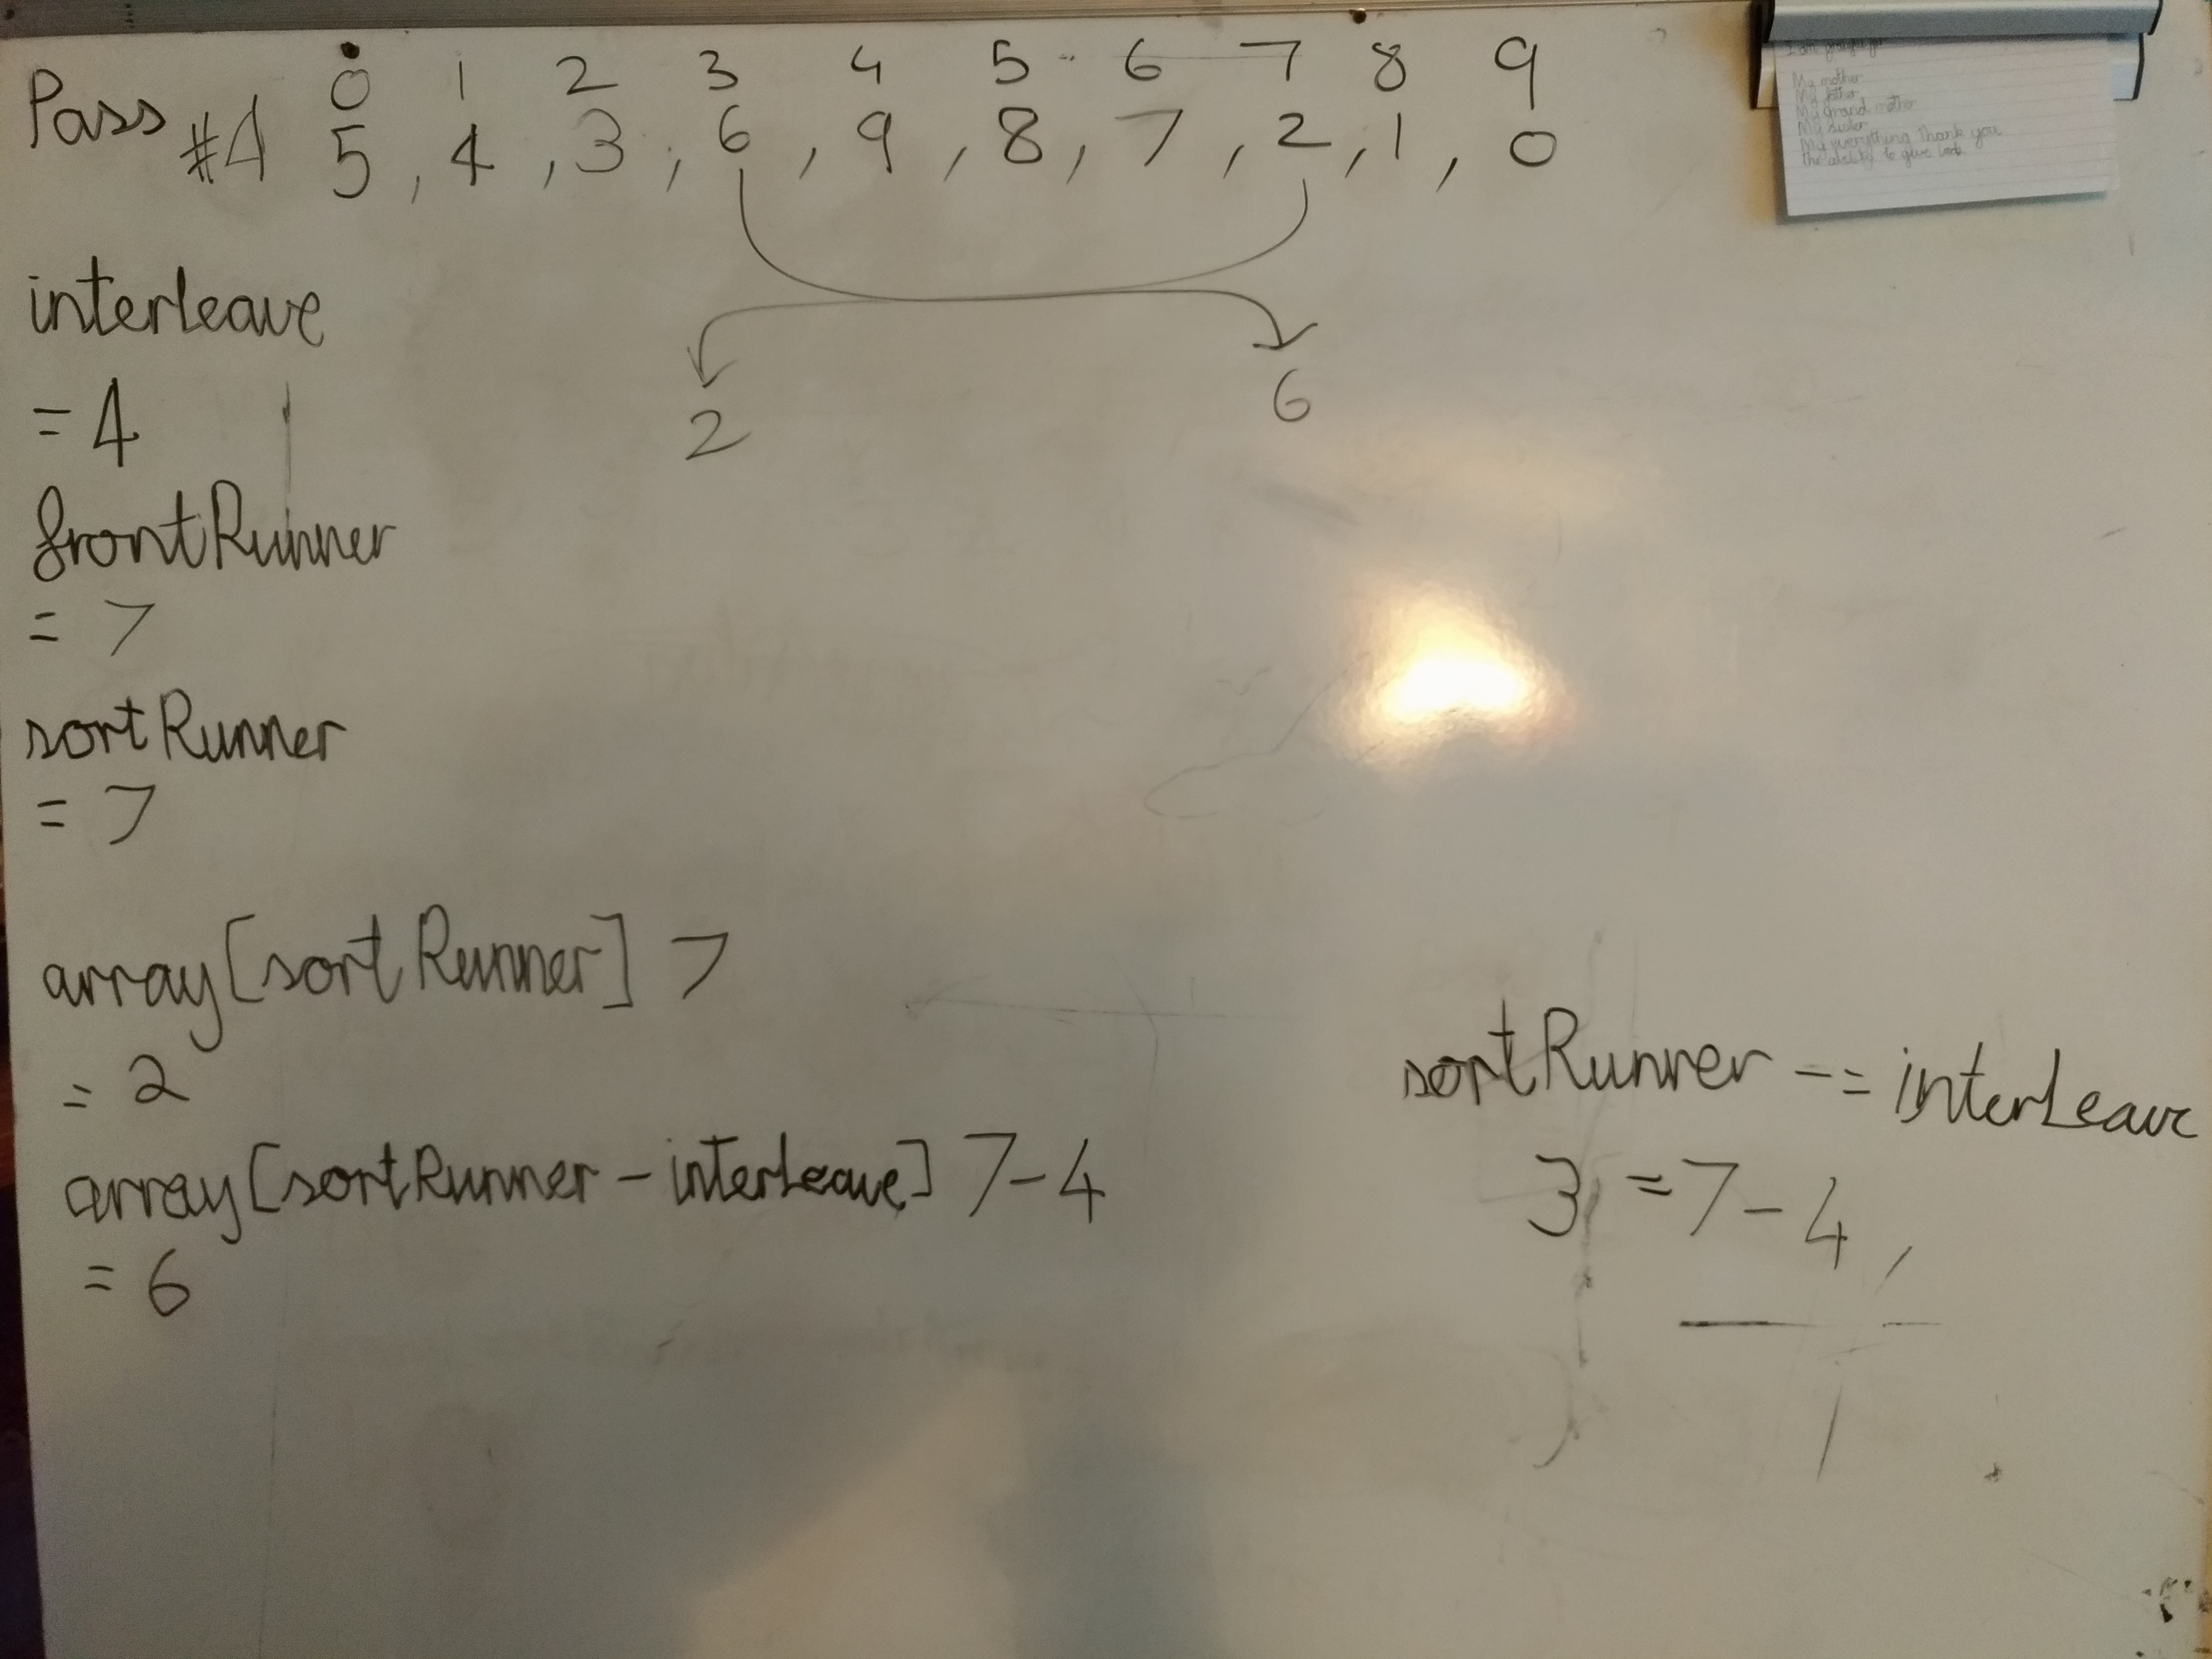 Pass #4
0 1 2 3 4 5 6 7 8 9
5, 4, 3, 6, 9, 8, 7, 2, 1, 0
2 6
interleave
= 4
frontRunner
= 7
sortRunner
= 7
array[sortRunner] 7
= 2
array[sortRunner - interLeave] 7-4
= 6
sortRunner -= interLeave
3 = 7-4
My mother
My father
My grand mother
My sister
My everything Thank you
the ability to give